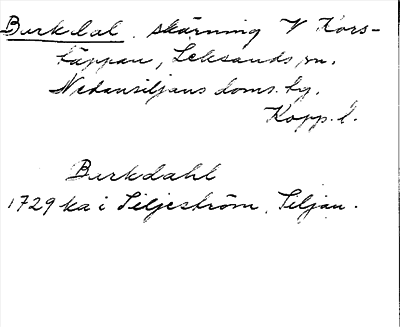 Burkdal, skärning V Kors-
täppan, Leksands sn.
Nedansiljans doms. hg.
Kopp. l.
Burkdahl
1729 ka i Siljeström, Siljan.